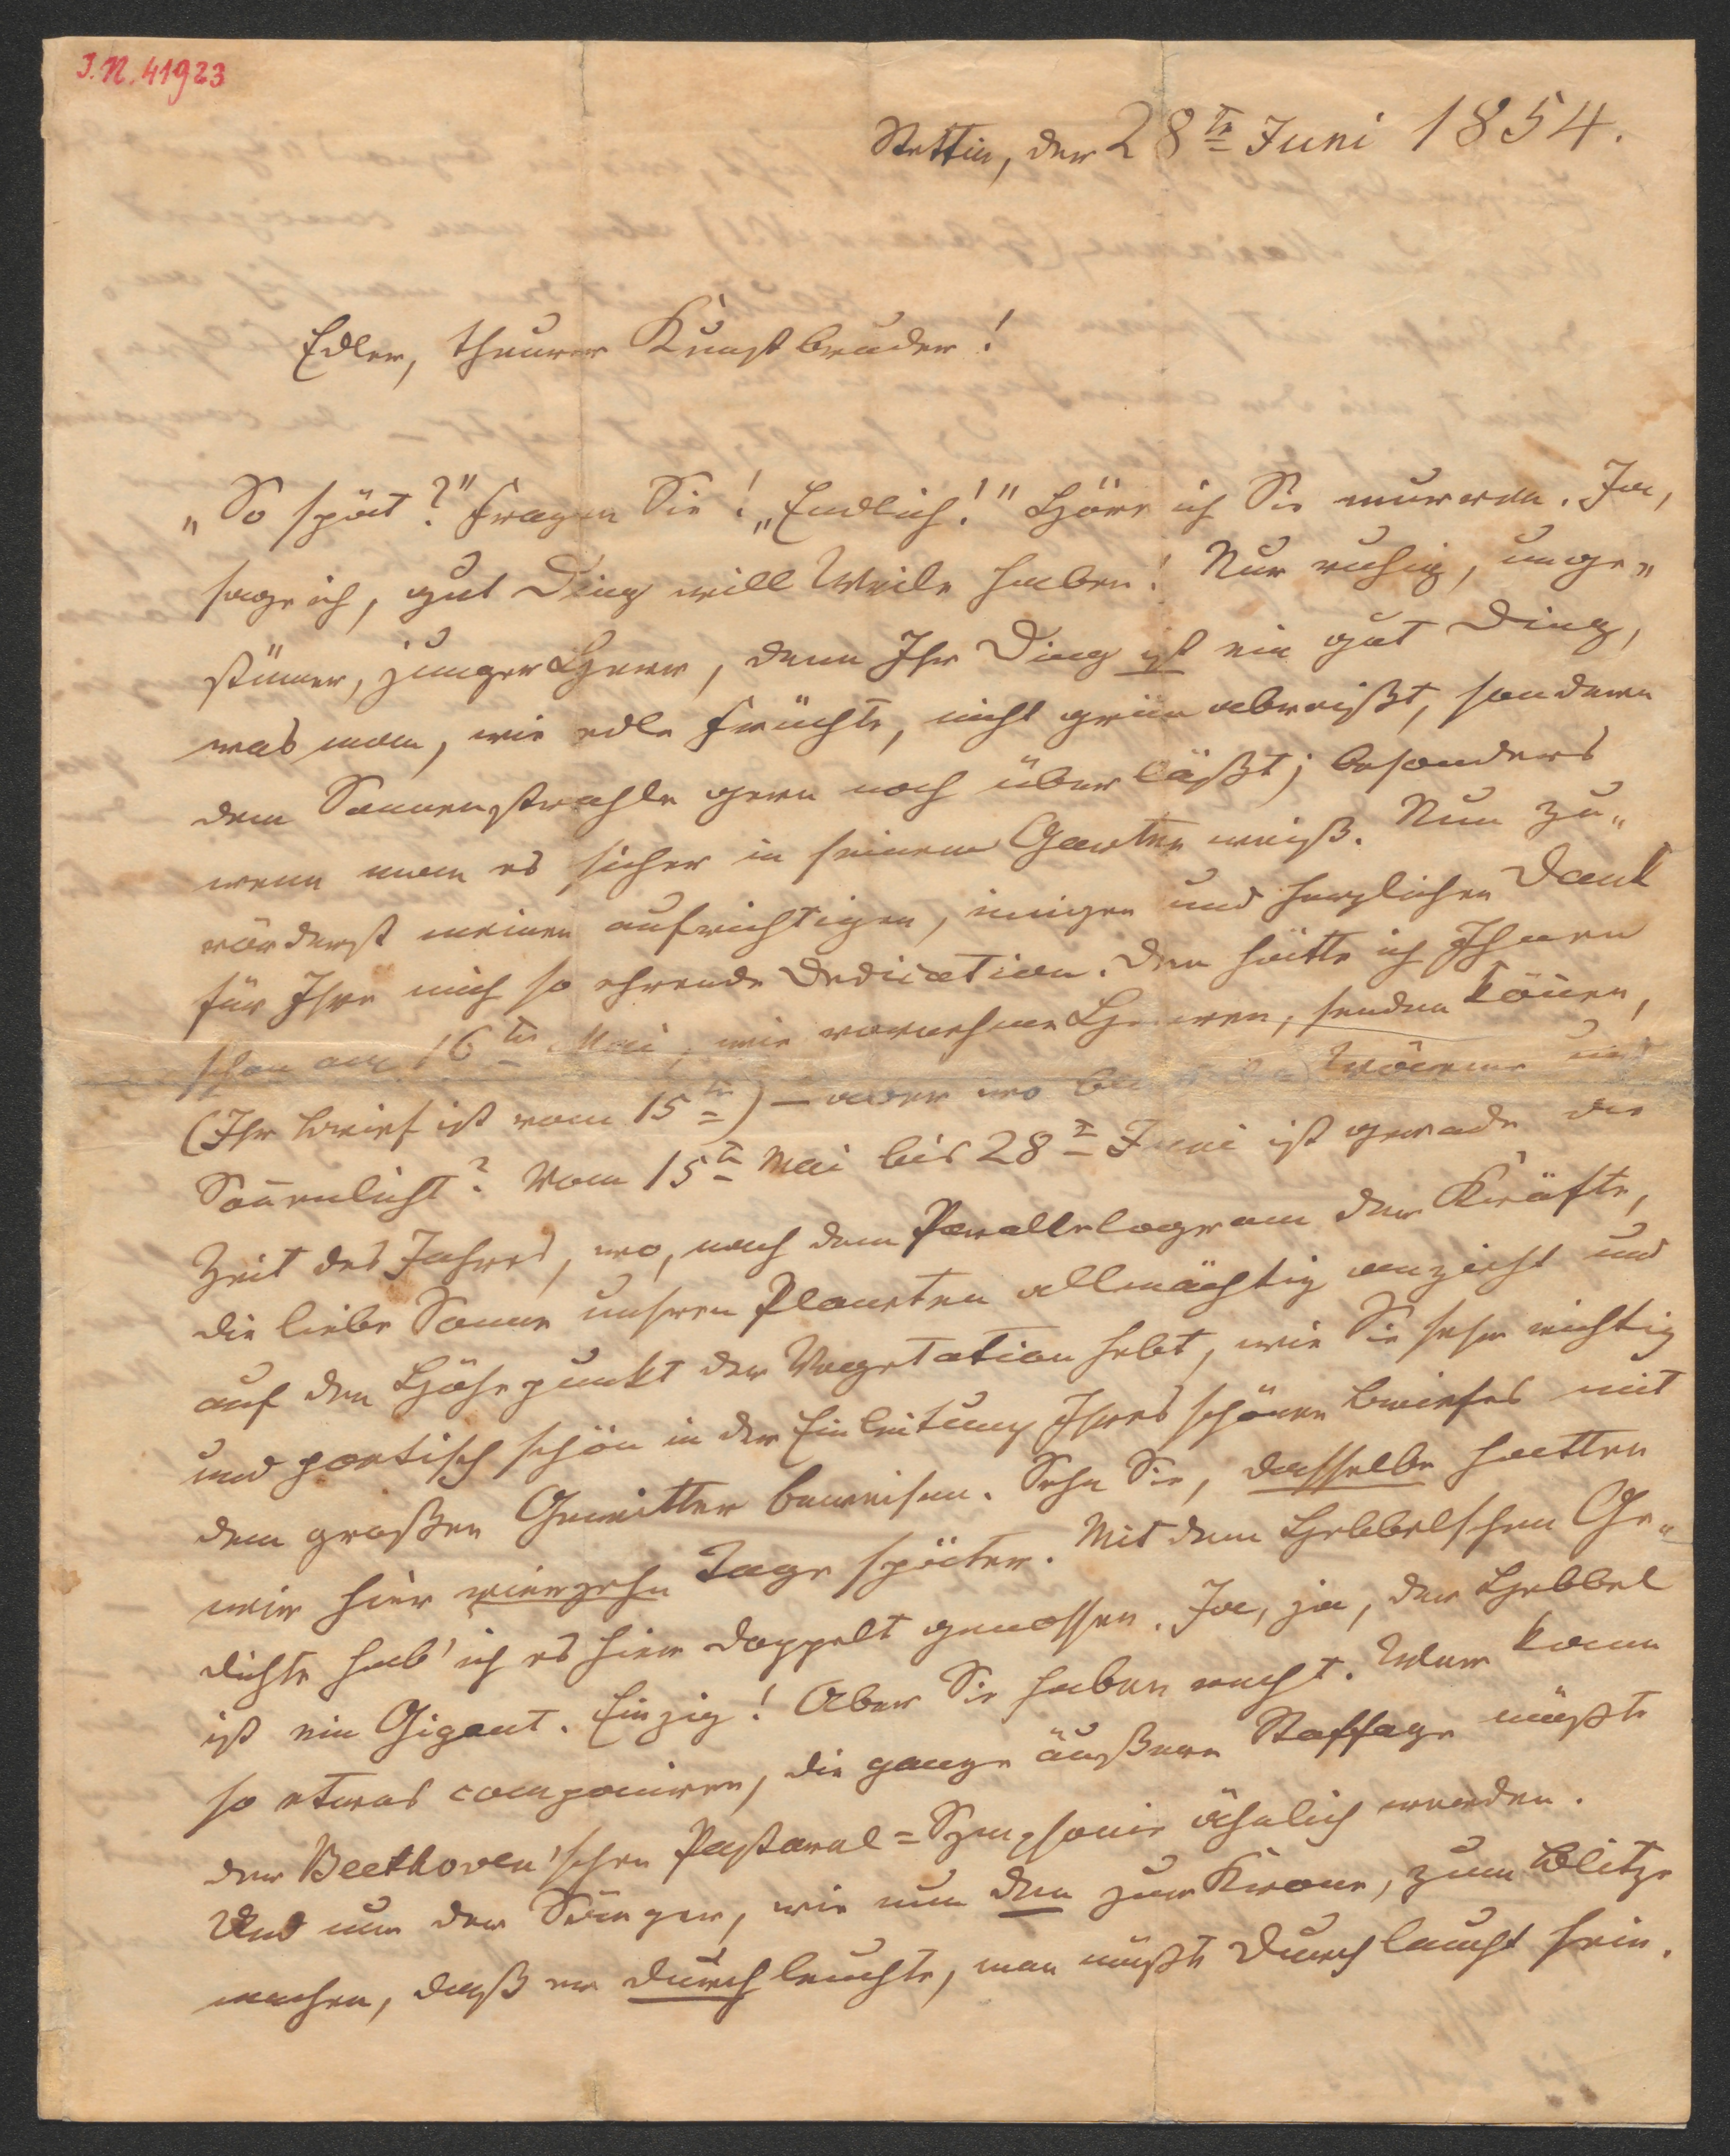 J.N. 41923
Stettin, den 28tn Juni 1854.
Edler, theurer Kunstbruder!
„So spät?" fragen Sie! „Endlich!" Höre ich Sie murren. Ja,
sage ich, gut Ding will Weile haben! Nur ruhig, unge„
stümer, junger Herr, denn Ihr Ding ist ein gut Ding,
was man, wie edle Früchte, nicht grün abreißt, sondern
dem Sonnenstrahle gern noch überläßt; besonders
wenn man es sicher in seinem Garten weiß. Nun zu„
vörderst meinen aufrichtigen, innigen und herzlichen Dank
für Ihre mich so ehrende Dedication. Den hätte ich Ihnen
schon am 16tn Mai, wie vornehme Herren, senden können,
(Ihr Brief ist vom 15tn) – aber wo Wärme und
Sonnenlicht? Vom 15tn Mai bis 28tn Juni ist gerade die
Zeit des Jahres, wo, nach dem Parallelogram der Kräfte,
die liebe Sonne unsren Planeten allmächtig anzieht und
auf den Höhepunkt der Vegetation hebt, wie Sie sehr richtig
und poetisch schön in der Einleitung Ihres schönen Briefes mit
dem großen Gewitter beweisen. Sehn Sie, dasselbe hatten
wir hier vierzehn Tage später. Mit dem Hebbelschen Ge„
dichte hab' ich es hier doppelt genossen. Ja, ja, der Hebbel
ist ein Gigant. Einzig! Aber Sie haben recht. Wer kann
so etwas componiren, die ganze äußere Staffage müßte
der Beethoven'schen Pastoral=Symphonie ähnlich werden.
Und nun der Sänger, wie nun den zur Krone, zum Blitze
machen, daß er durchleuchte, man müßte Durchlaucht sein.